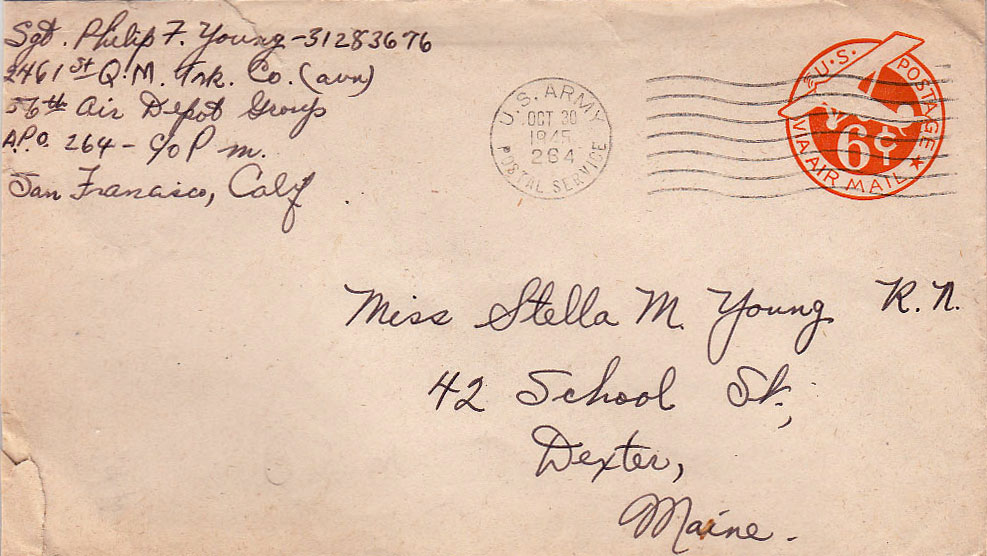 Sgt. Philip F. Young - 31283676
2461st Q.M. Trk. Co. (avn)
56th Air Depot Group
A.P.O. 264 - c/o P m.
San Francisco, Calif
U.S. ARMY
OCT 30
1945
264
POSTAL SERVICE
U.S. POSTAGE
6¢
VIA AIR MAIL
Miss Stella M. Young R.N.
42 School St.,
Dexter,
Maine.